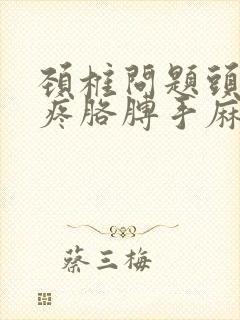 頚柱問題頭
疼胳膊手麻
蔡三梅